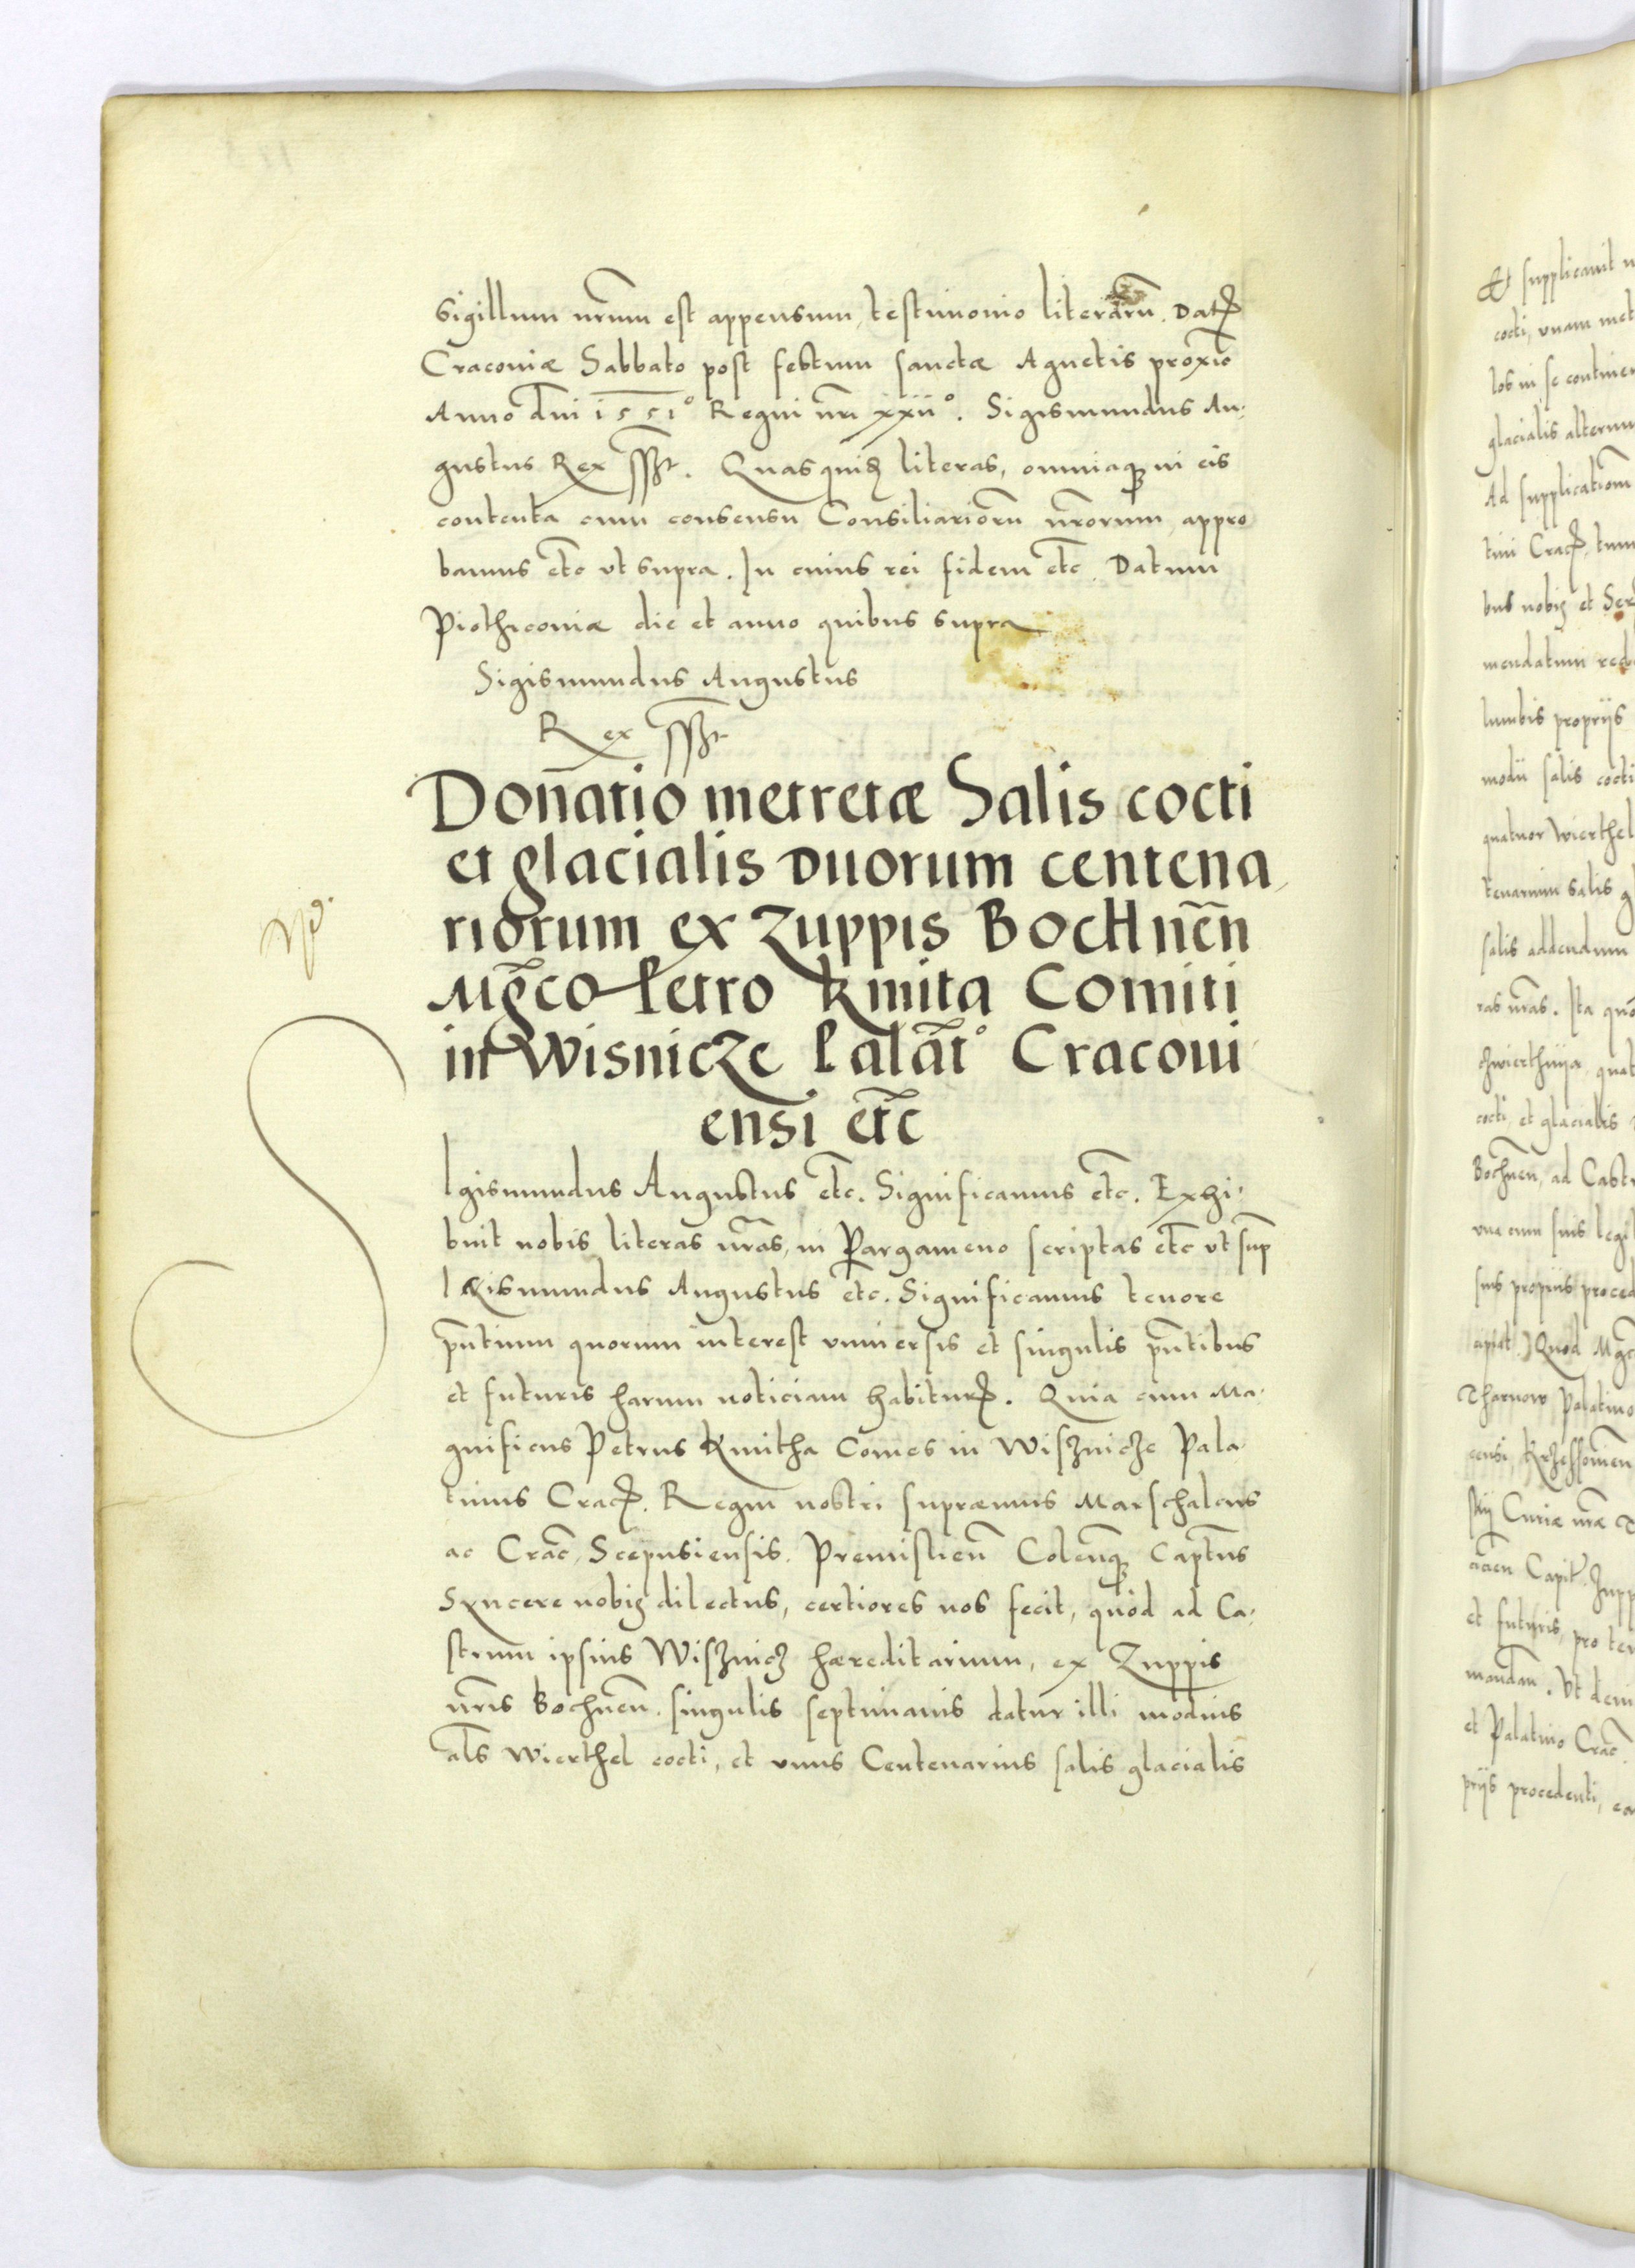 sigillum nr̃um est appensum, testimonio literarũ. Datꝝ
Cracouiæ Sabbato post festum sanctæ Agnetis proxĩo
Anno dñi 1551° Regni nr̃i xxii°. Sigismundus Au-
gustus Rex sszt. Quas quidẽ literas, omniaqꝫ in eis
contenta cum consensu Consiliariorũ nr̃orum, appro
bamus etc̃ vt supra. In cuius rei fidem etc̃. Datum
Piothrcouiæ die et anno quibus supra
Sigismundus Augustus
Rex sszt
Donatio metretæ Salis cocti
et glacialis duorum centena,
riorum ex Zuppis Bochneñ
Mg̃co Petro Kmita Comiti
in Wisnicze Palat̃° Cracoui
ensi etc̃
Igismundus Augustus etc̃. Significamus etc̃. Exhi-
buit nobis literas nr̃as, in Pargameno scriptas etc̃ vt sup̃
Igismundus Augustus etc̃. Significamus tenore
pñtium quorum interest vniuersis et singulis pñtibus
et futuris harum noticiam habiturꝝ. Quia cum Ma-
gnificus Petrus Kmitha Comes in Wisznicze Pala-
tinus Cracꝝ. Regni nostri supræmus Marschalcus
ac Crac̃, Scepusiensis. Premislieñ Coleñqꝫ Captñus
Syncere nobis dilectus, certiores nos fecit, quod ad Ca-
strum ipsius Wisznicz hæreditarium, ex Zuppis
nr̃is Bochneñ. singulis septimanis datur illi modius
al̃s Wierthel cocti, et vnus Centenarius salis glacialis
Et supplicauit
cocti, vnam
los in se
glacialis
Ad supplicationẽ
tini Cracꝝ,
bus nobis et
mendatum
lumbis proprijs
modii salis cocti
quatuor Wierthel
tenarium salis
salis addendum
ras nr̃as. Ita
cocti, et glacialis
Bochneñ, ad
vna cum suis
suis proprijs
Quod
Tharnow Palatino
Curiæ nr̃æ
et futuris, pro
et Palatino Crac̃.
prijs procedenti,